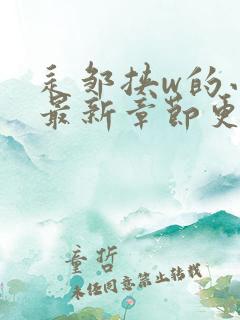 是邹挟w的小
最新章节更
童哲
未经同意禁止转载